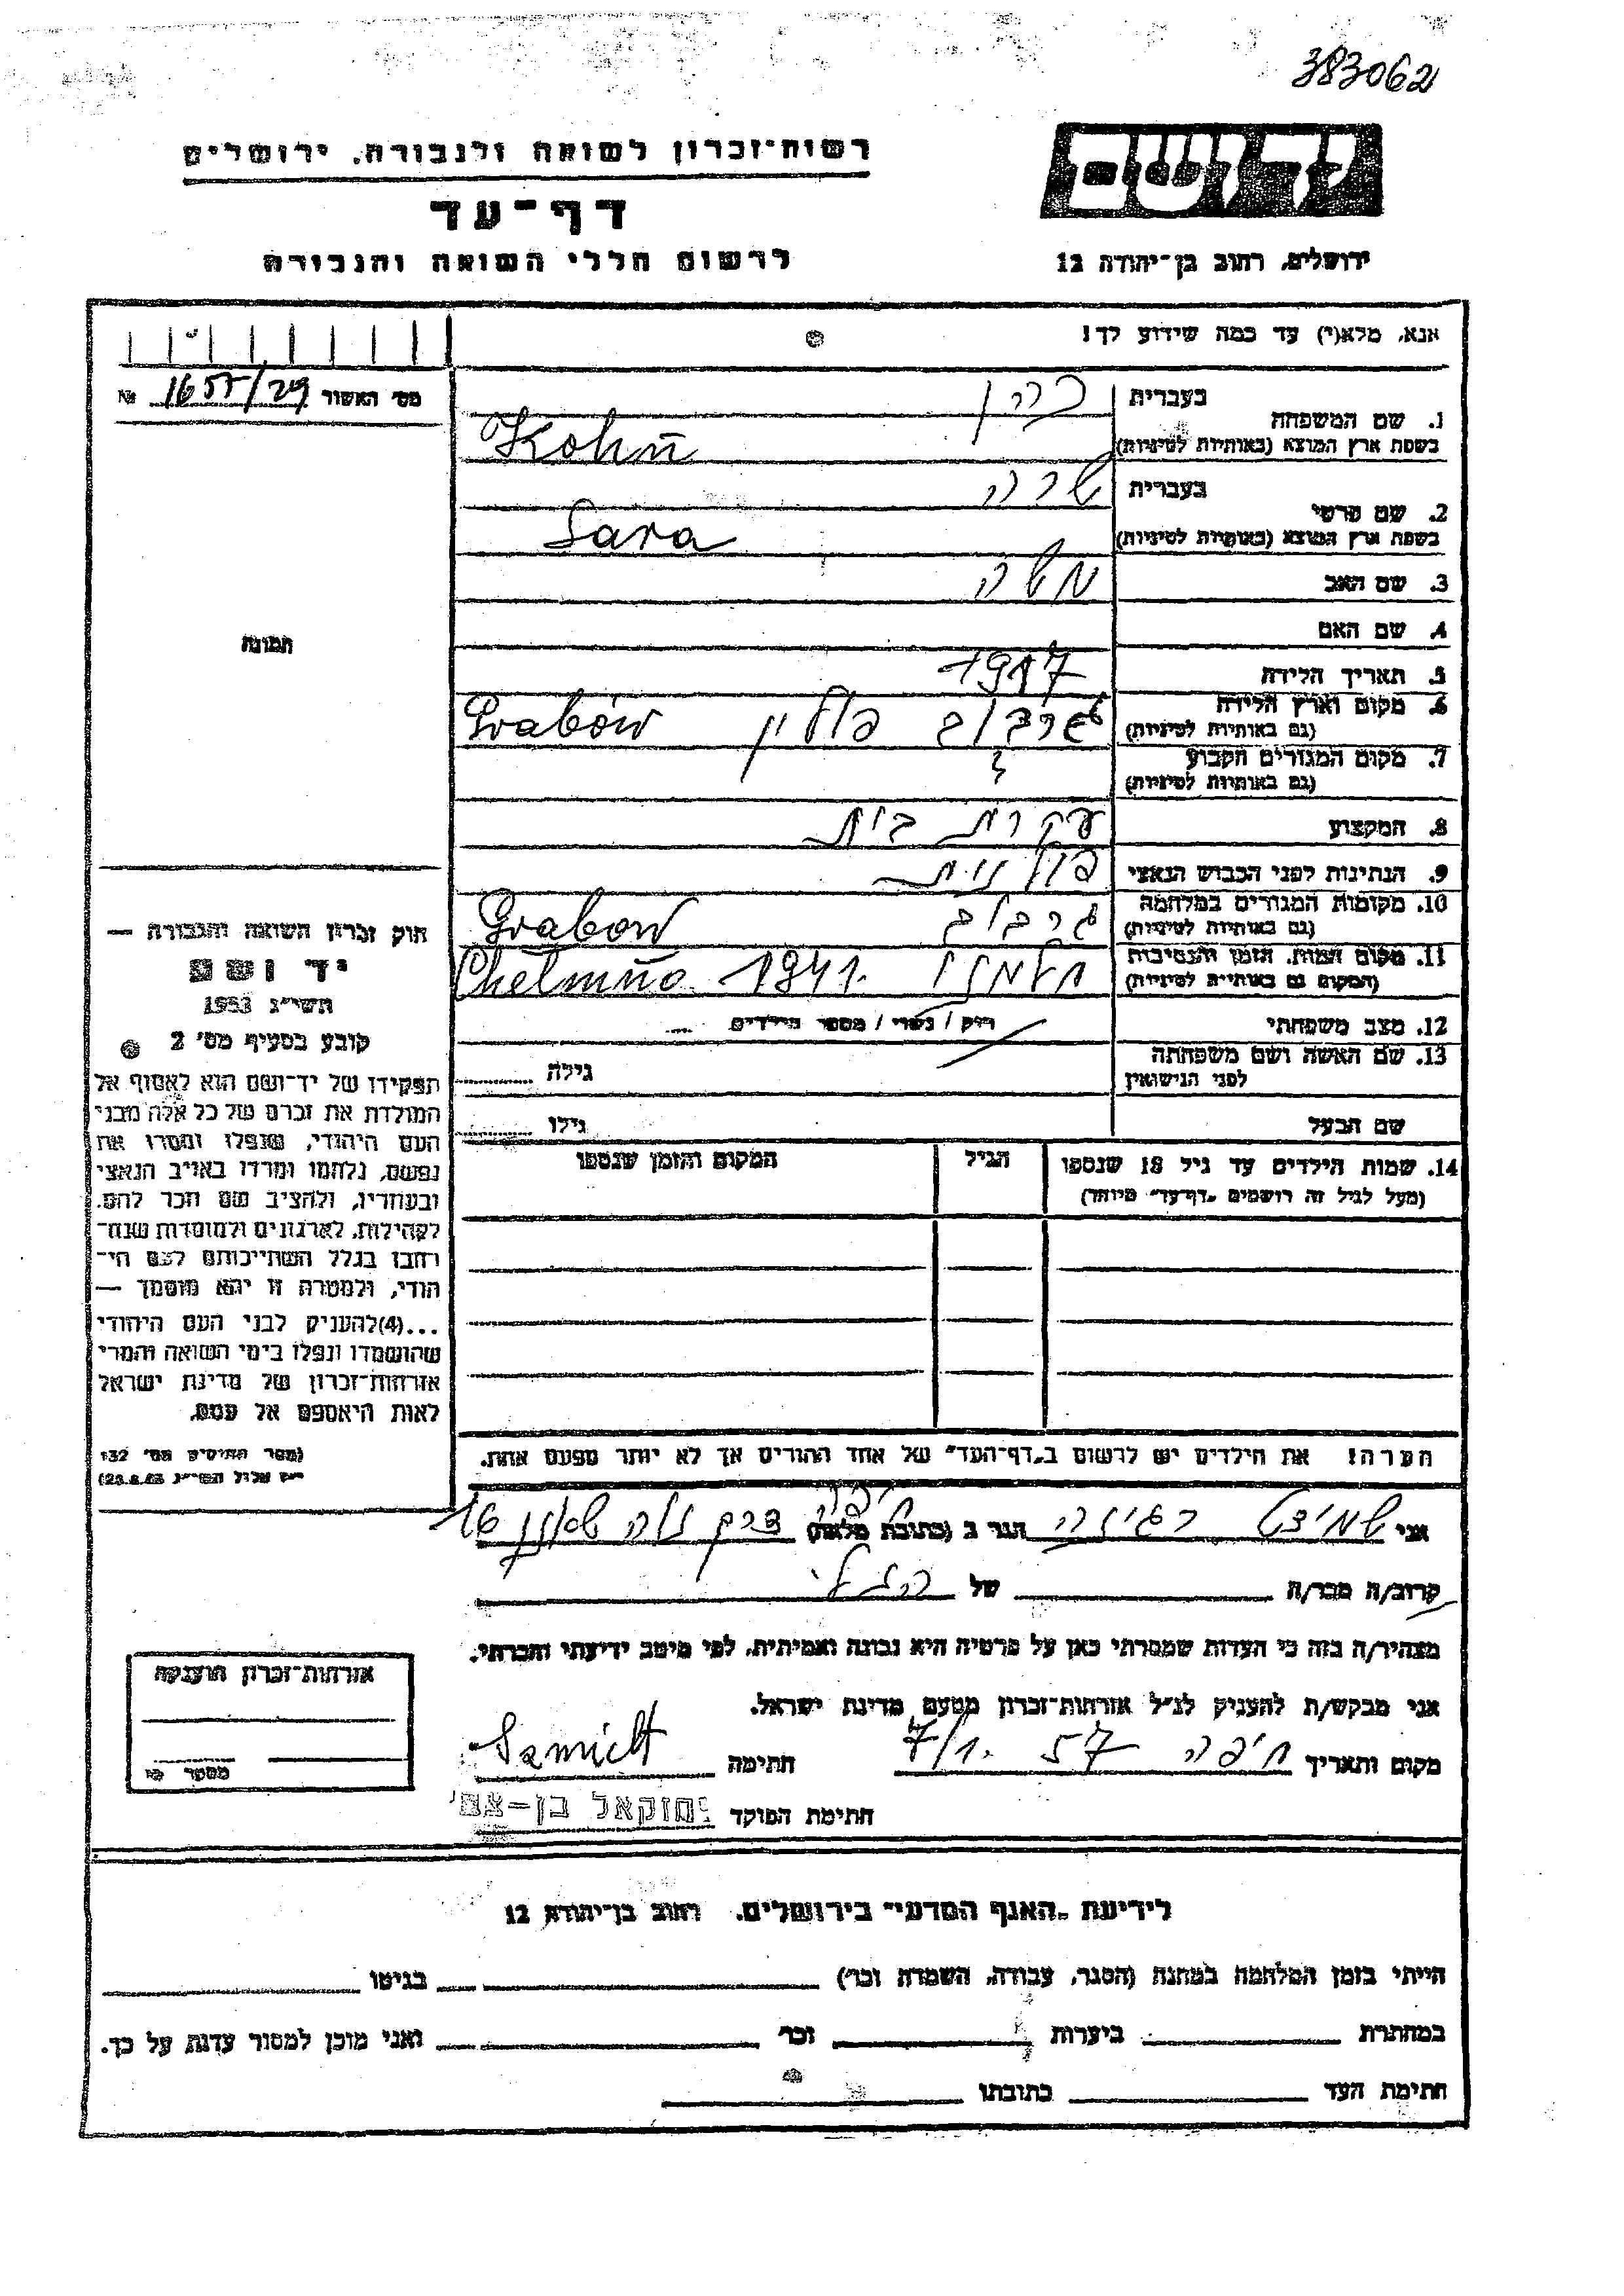 383062
רשות־זכרון לשואה ולגבורה, ירושלים
דף־עד
לרשום חללי השואה והגבורה
ירושלים, רחוב בן־יהודה 12
אנא, מלא(י) עד כמה שידוע לך!
מס׳ האשור № 1655/29
1. שם המשפחה בעברית כהן
בשפת ארץ המוצא (באותיות לטיניות) Kohn
2. שם פרטי בעברית שרה
בשפת ארץ המוצא (באותיות לטיניות) Sara
3. שם האב משה
4. שם האם
5. תאריך הלידה 1917
6. מקום וארץ הלידה גרבוב פולין Grabów
(גם באותיות לטיניות)
7. מקום המגורים הקבוע ?
(גם באותיות לטיניות)
8. המקצוע עקרת בית
9. הנתינות לפני הכבוש הנאצי פולנית
10. מקומות המגורים במלחמה גרבוב Grabow
(גם באותיות לטיניות)
11. מקום המות, הזמן והנסיבות חלמנו 1941. Chelmno
(המקום גם באותיות לטיניות)
12. מצב משפחתי רווק / נשוי / מספר הילדים
13. שם האשה ושם משפחתה גילה
לפני הנישואין
שם הבעל גילו
14. שמות הילדים עד גיל 18 שנספו הגיל המקום והזמן שנספו
(מעל לגיל זה רושמים „דף־עד״ מיוחד)
הערה! את הילדים יש לרשום ב„דף־העד״ של אחד ההורים אך לא יותר מפעם אחת.
תמונה
חוק זכרון השואה והגבורה —
יד ושם
תשי״ג 1953
קובע בסעיף מס׳ 2
תפקידו של יד־ושם הוא לאסוף אל
המולדת את זכרם של כל אלה מבני
העם היהודי, שנפלו ומסרו את
נפשם, נלחמו ומרדו באויב הנאצי
ובעוזריו, ולהציב שם וזכר להם,
לקהילות, לארגונים ולמוסדות שנח־
רבו בגלל השתייכותם לעם הי־
הודי, ולמטרה זו יהא מוסמך —
...(4)להעניק לבני העם היהודי
שהושמדו ונפלו בימי השואה והמרי
אזרחות־זכרון של מדינת ישראל
לאות היאספם אל עמם.
(ספר החוקים מס׳ 132
חיפה
אני שמידט רגינה הגר ב (כתובת מלאה) דרך נוה שאנן 16
קרוב/ה מכר/ה של
מצהיר/ה בזה כי העדות שמסרתי כאן על פרטיה היא נכונה ואמיתית, לפי מיטב ידיעתי והכרתי.
אני מבקש/ת להעניק לנ״ל אזרחות־זכרון מטעם מדינת ישראל.
מקום ותאריך חיפה 7/1. 57 חתימה Szmidt
חתימת הפוקד יחזקאל בן־
אזרחות־זכרון הוענקה
מספר
לידיעת „האגף המדעי״ בירושלים, רחוב בן־יהודה 12
הייתי בזמן המלחמה במחנה (הסגר, עבודה, השמדה וכו׳) בגיטו
במחתרת ביערות וכו׳ ואני מוכן למסור עדות על כך.
חתימת העד כתובתו